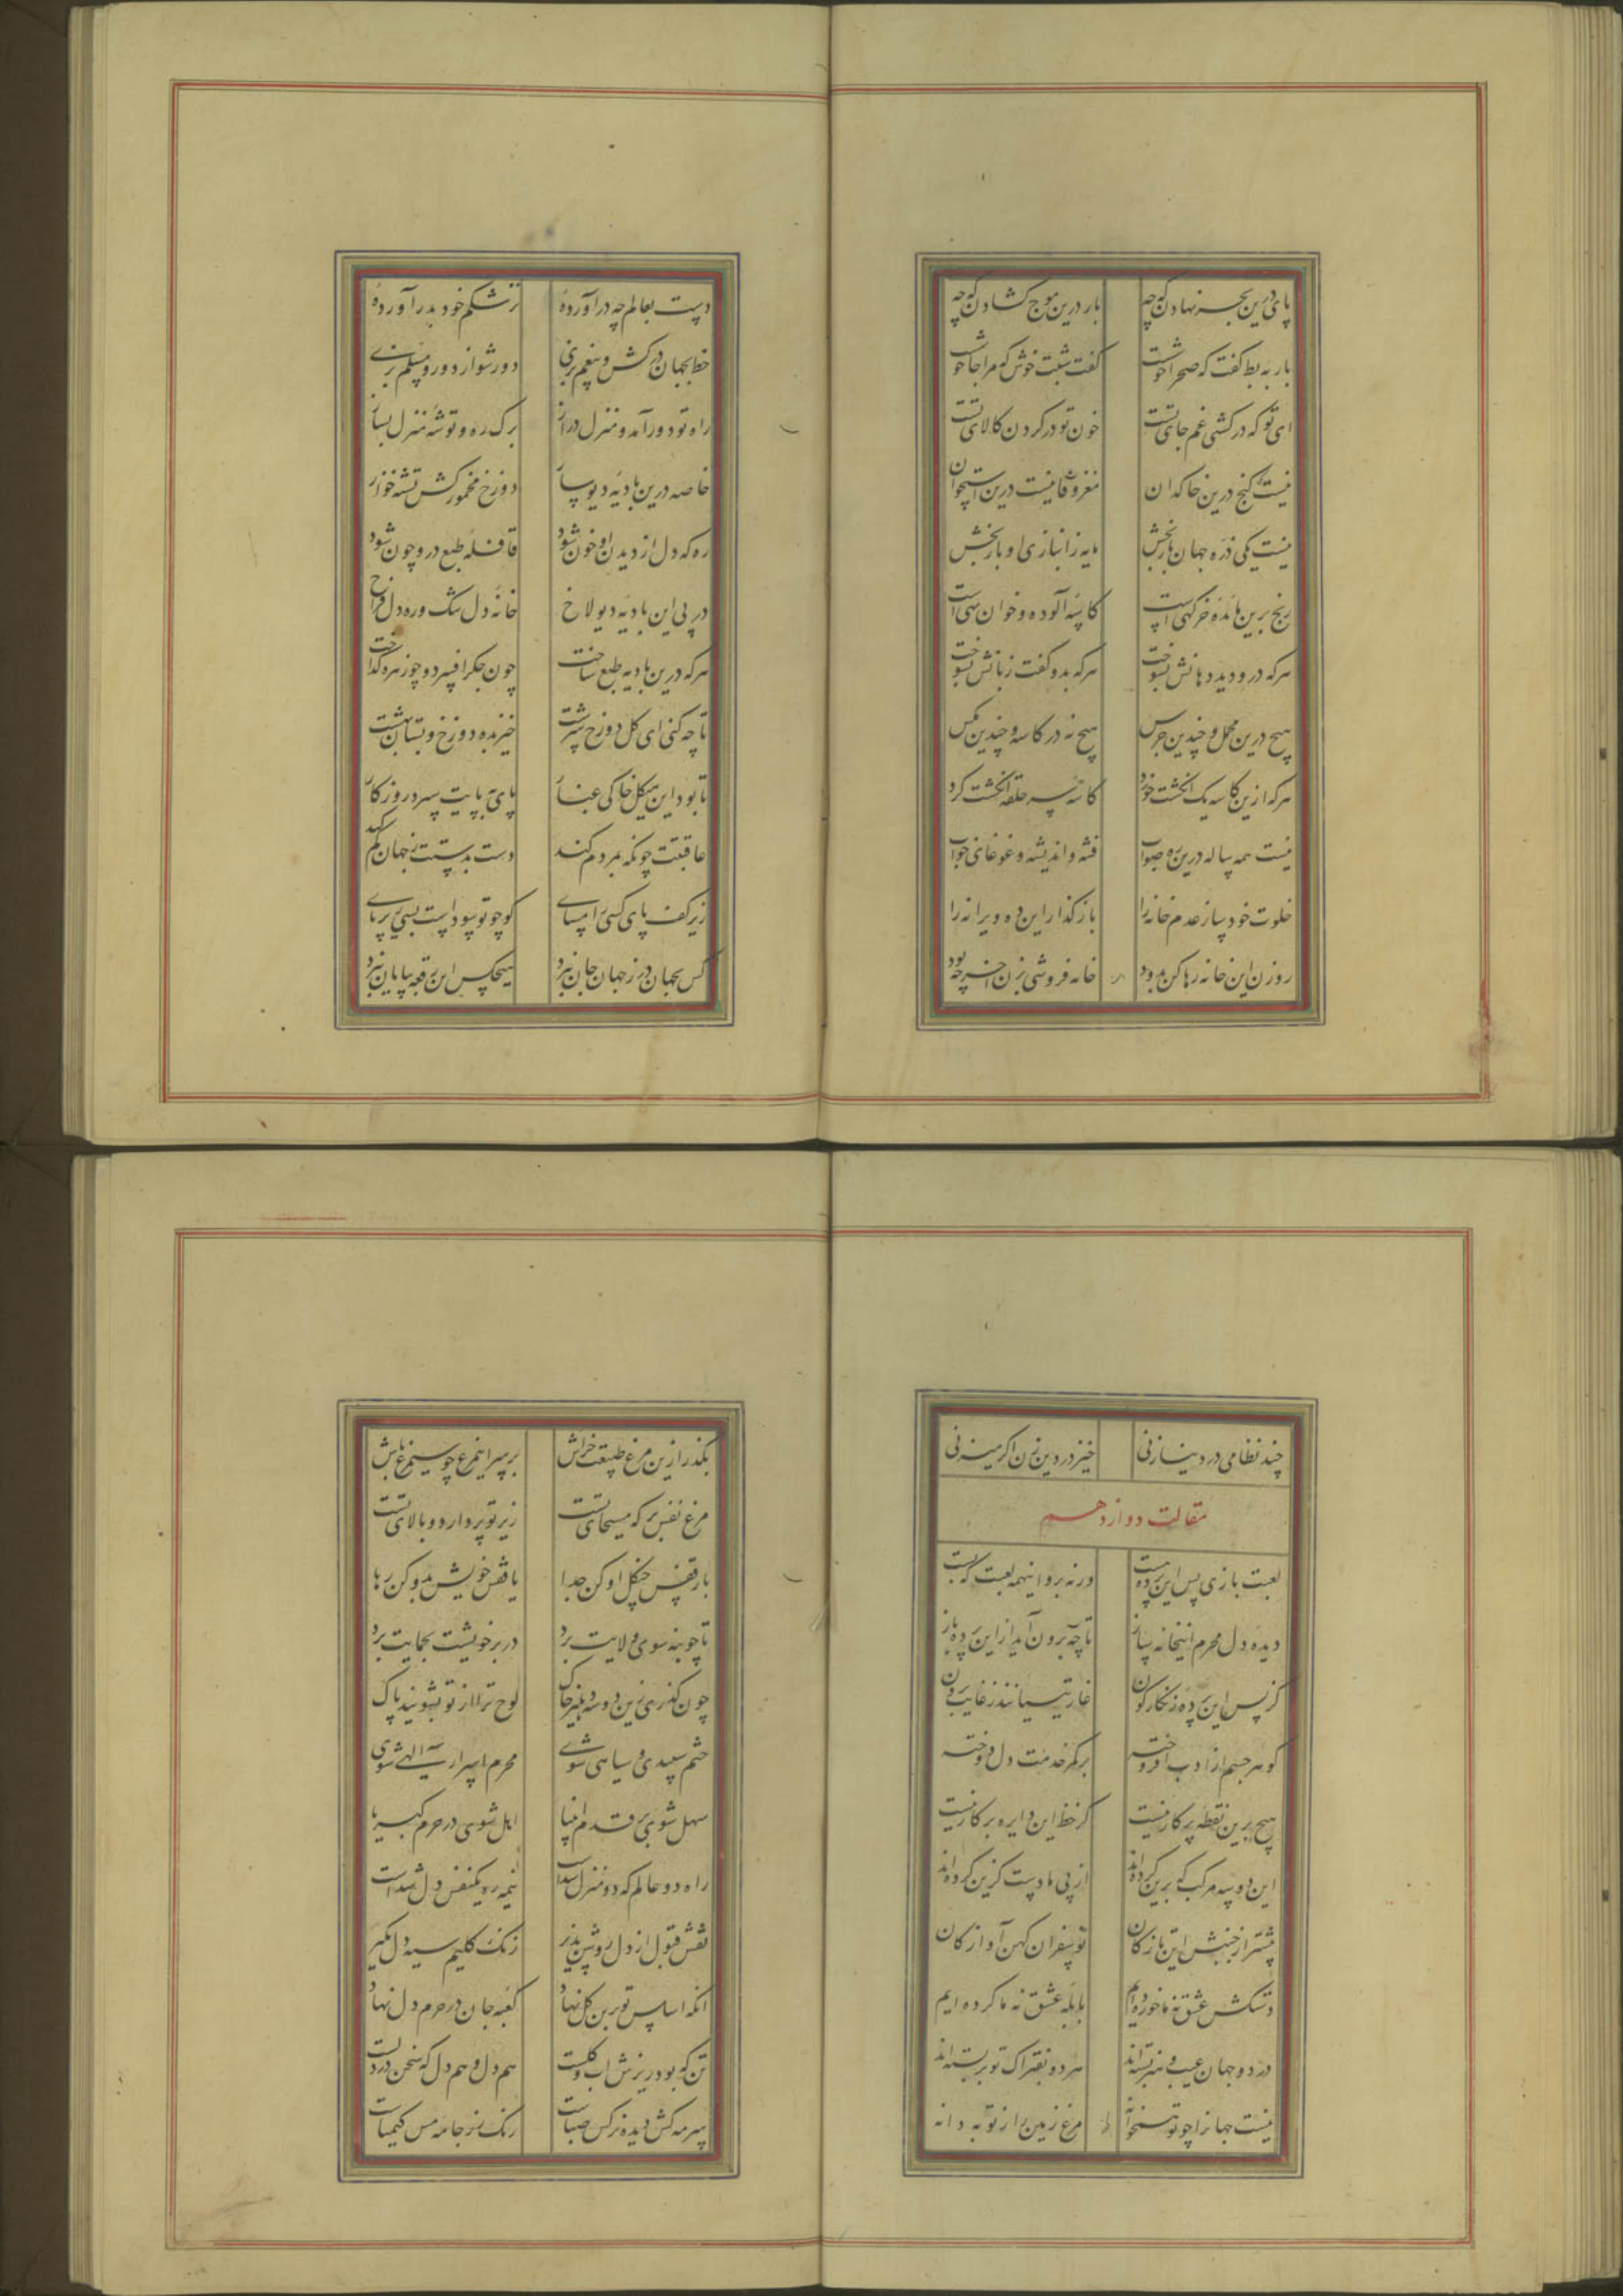 پای درین بحر نهادن که چه بار درین موج گشادن که چه
باز به بط گفت که صحرا خوشست گفت شبت خوش که مرا جا خوشست
ای تو که در کشتی غم جای تست خون تو در گردن کالای تست
نیست کنج درین خاکدان مغز وفا نیست درین استخوان
نیست یکی ذره جهان بازکش پایه ز انبازی او بازکش
رنج برین مائده خرکهی است کاسه آلوده و خوان تهی است
هر که درو دید دهانش بسوخت هر که بدو گفت زبانش بسوخت
هیچ درین محمل و چندین جرس هیچ نه در کاسه و چندین مگس
هر که ازین کاسه یک انگشت خورد کاسه سر حلقه انگشت کرد
نیست همه ساله درین ره صواب فتنه و اندیشه و غوغای خواب
خلوت خود ساز عدم خانه را باز گذار این ده ویرانه را
روزن این خانه رها کن بدود خانه فروشی بزن آخر چه بود
دست بعالم چه درآورده نز شکم خود بدر آورده
خط بجهان درکش و بیغم بزی دور شو از دور و مسلم بزی
راه تو دور آمد و منزل دراز برک ره و توشه منزل بساز
خاصه درین بادیه دیوسار دوزخ محرور کش تشنه خوار
ره که دل از دیدن او خون شود قافله طبع درو چون شود
در پی این بادیه دیولاخ خانه دل تنگ و ره دل فراخ
هر که درین بادیه با طبع ساخت چون جگر افسرد و چو زهره گداخت
تا چه کنی ای گل دوزخ سرشت خیز بده دوزخ و بستان بهشت
تا بود این هیکل خاکی غبار پای بپایت سپرد روزگار
عاقبتت چونکه بمردم کند دست بدستت ز جهان گم کند
زیر کف پای کسی را مسای کو چو تو سودست بسی زیر پای
کس بجهان در ز جهان جان نبرد هیچکس این رقعه بپایان نبرد
چند نظامی در دنیا زنی خیز در دین زن اگر میزنی
مقالت دوازدهم
لعبت بازی پس این پرده هست ورنه برو اینهمه لعبت که بست
دیده دل محرم اینخانه ساز تا چه برون آید ازین پرده باز
کز پس این پرده زنگارگون غاریتیانند ز غایت برون
گوهر چشم از ادب افروخته بر کمر خدمت دل دوخته
هیچ برین نقطه پرگار نیست کز خط این دایره بر کار نیست
این دو سه مرکب که برین کرده‌اند از پی ما دست گزین کرده‌اند
پیشتر از جنبش این تازگان نوسفران کهن آوازگان
دستکش عشق نه ما خورده ایم بابله عشق نه ما کرده ایم
در دو جهان عیب و هنر بسته‌اند هر دو بفتراک تو بربسته‌اند
نیست جهانرا چو تو همخانه مرغ زمین را ز تو به دانه
بگذر ازین مرغ طبیعت خراش بر سر اینمرغ چو سیمرغ باش
مرغ نفس پر که مسیحای تست زیر تو پر دارد و بالای تست
یا ز قفس چنگل او کن جدا یا قفس خویش بدو کن رها
تا چو بنه سوی ولایت برد در پر خویشت بحمایت برد
چون گذری زین دو سه دهلیز خاک لوح ترا از تو بشویند پاک
ختم سپیدی و سیاهی شوی محرم اسرار الهی شوی
سهل شوی بر قدم انبیا اهل شوی در حرم کبریا
راه دو عالم که دو منزل شداست نیمه ره یکنفس دل شداست
نقش قبول از دل روشن پذیر زنگ گلیم سیه دل مگیر
آنکه اساس تو برین گل نهاد کعبه جان در حرم دل نهاد
تن که بود ریزش آب و گلست هم دل و هم دل که سخن در دلست
سرمه کش دیده نرگس صباست رنگ زر جامه مس کیمیاست